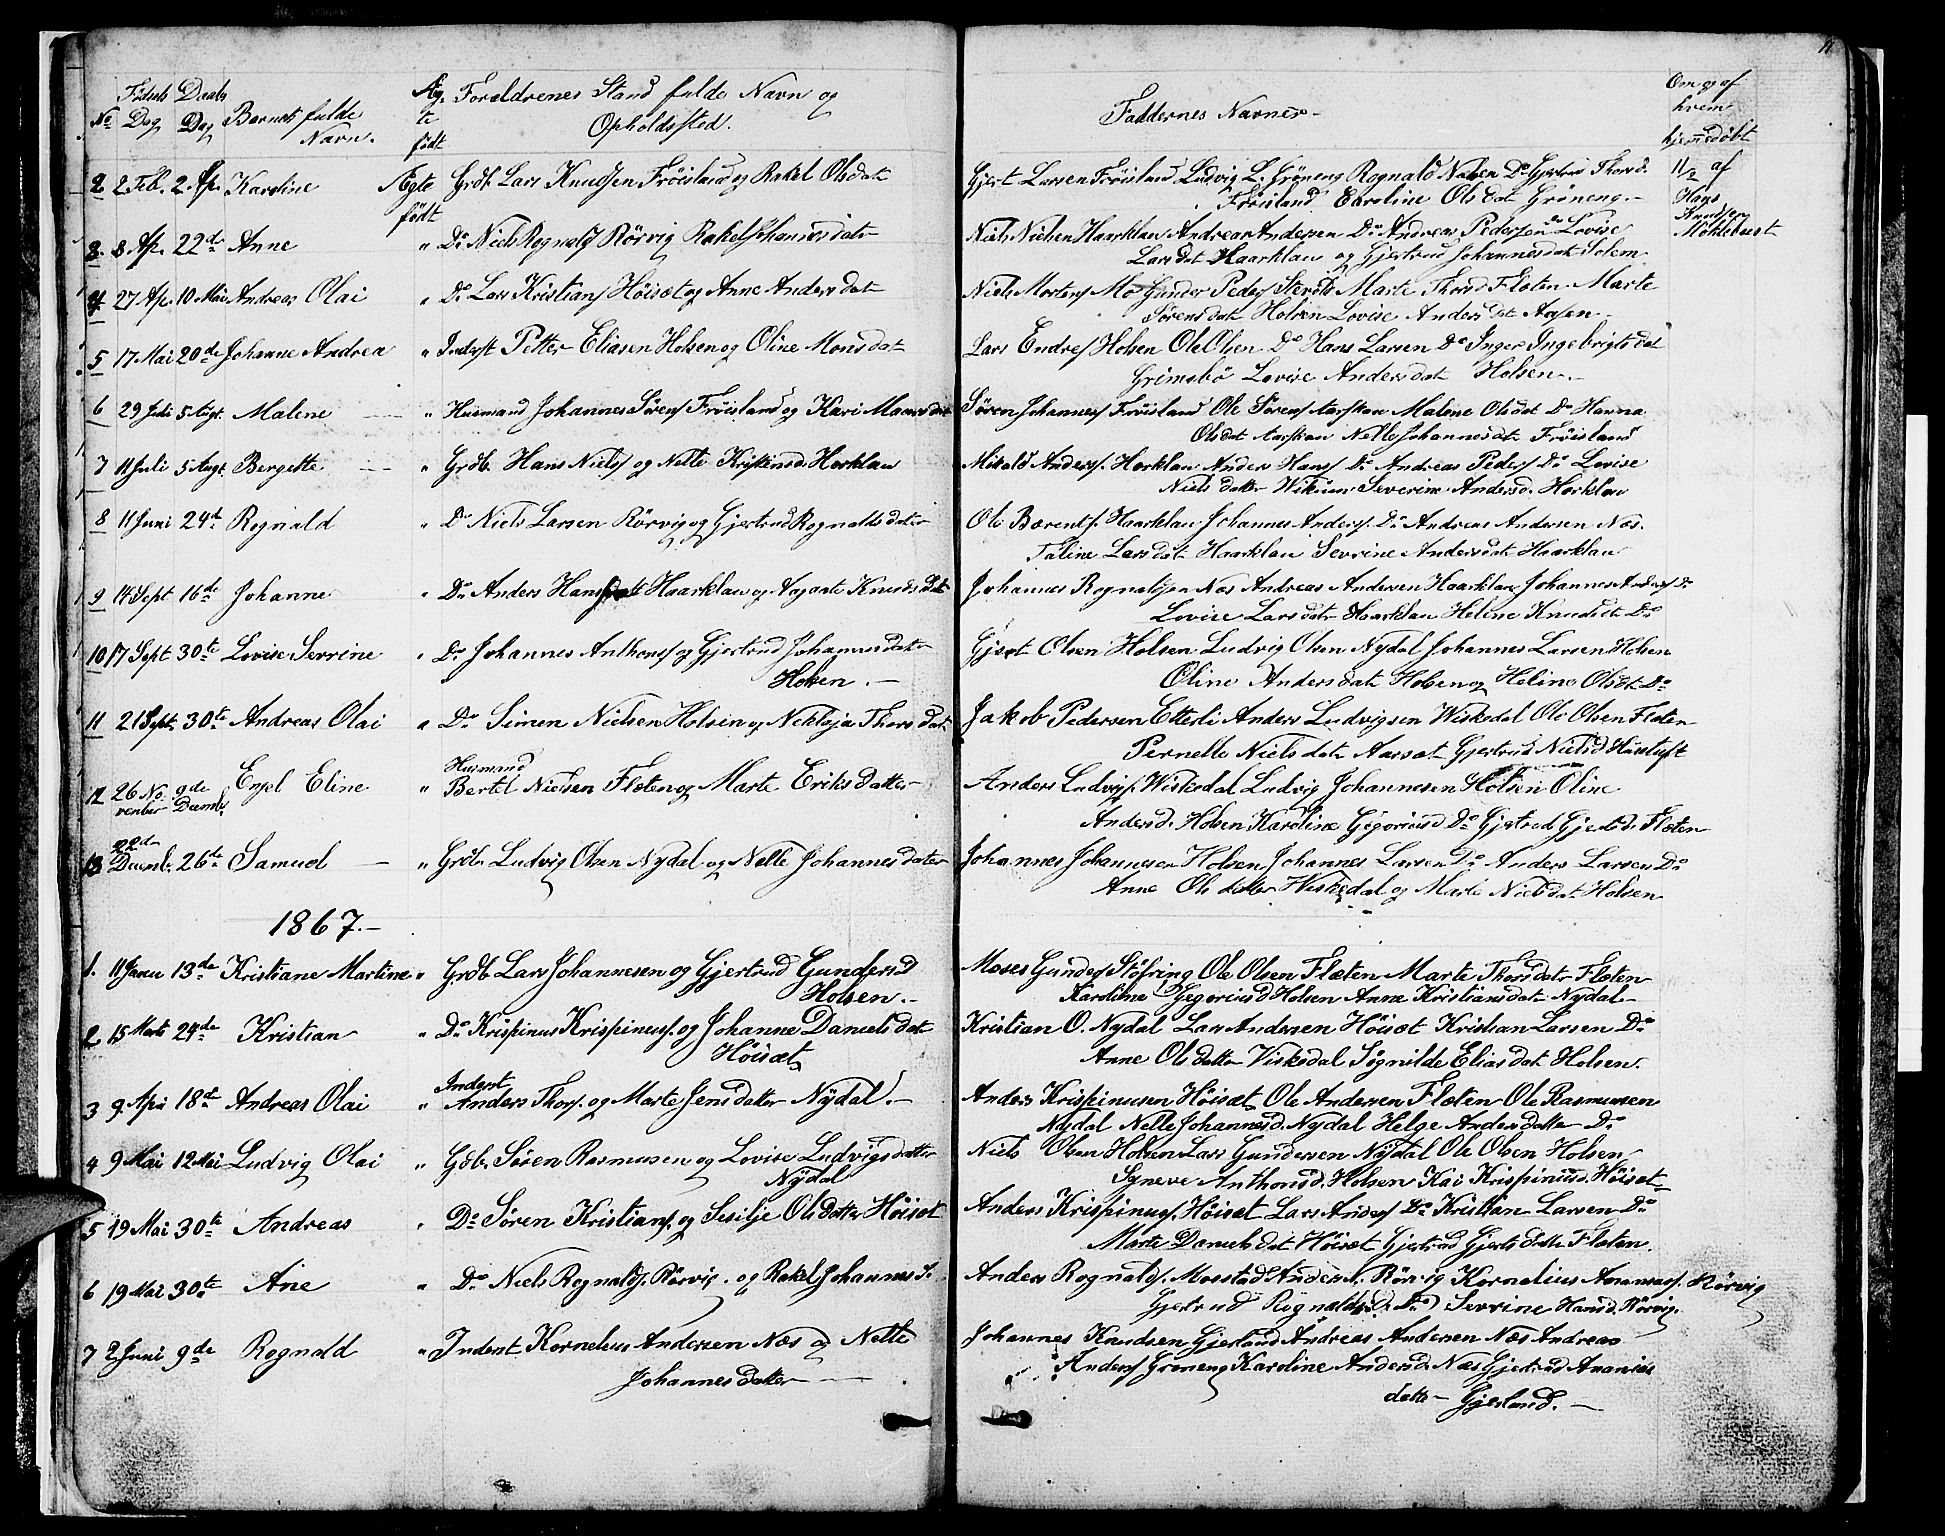 No Fødsels Dag Daabs Dag Barnets fulde Navn. Ægte født Foreldrenes Stand fulde Navn og Opholdssted. Faddernes Navner Om og af hvem hjemmedøbt
2 2 Feb. 2 Ap. Karoline Ægte født Grdb. Lars Knudsen Frøisland og Rakel Olsdat Gjert Larsen Frøisland Ludvig L. Grøneng Rognald Do Gjertrud Thorsd. 11/2 af
Frøisland Caroline Olsdat Grøneng. Hans Knudsen Mohlebust
3 8 Ap. 22de Anne " Do Niels Rognalds Rørvig Rakel Johannesdatr Niels Nielsen Haarklau Andreas Andersen Do Andreas Pedersen Do Lovise
Larsdat Haarklau og Gjertrud Johannesdat Solem
4 27 Ap. 10 Mai Andreas Olai " Do Lars Kristians Høisæt og Anne Andersdat Niels Mortens Mo Gunder Peders Marte Thorsd Flæten Marte
Sørensdat Holsen Lovise Andersdat Aasen
5 17 Mai 20de Johanne Andrea " Inderst Petter Eliasen Holsen og Oline Monsdat Lars Endres Holsen Ole Olsen Do Hans Larsen Do Inger Ingebrigtsdat
Grimsbø Lovise Andersdat Holsen.
6 29 Juli 5 Augt. Malene " Husmand Johannes Sørens Frøisland og Kari Monsdat Søren Johannes Frøisland Ole Sørens Aarskau Malene Olsdat Do Hanna
Olsdat Aarskau Nelle Johannesdt. Frøisland
7 11 Juli 5 Augt. Bergette " Grdb. Hans Niels og Nelle Kristensd. Horklau Mikald Anders. Horklau Anders Hans Do Andreas Peders Do Lovise
Niels datter Wiknæs Severine Andersd. Horklau
8 11 Juni 24de Rognald " Do Niels Larsen Rørvig og Gjertrud Rognaldsdatr Ole Bærents. Haarklau Johannes Anders. Do Andreas Andersen Næs.
Taline Larsdat Haarklau Sevrine Andersdat Haarklau
9 14 Sept 16de Johanne " Do Anders Hans Haarklau og Aagaate Knudsdat Johannes Rognaldsen Næs Andreas Andersen Haarklau Johannes Anders Do
Lovise Larsdatr Haarklau Heline Knudsdt. Do
10 17 Sept 30te Lovise Sevrine " Do Johannes Anthons og Gjertrud Johannesdatr Gjert Olsen Holsen Ludvig Olsen Nydal Johannes Larsen Holsen
Holsen. Oline Andersdat Holsen og Heline Olsdt. Do
11 21 Sept. 30te Andreas Olai " Do Simen Nielsen Holsen og Thorsdat. Jakob Pedersen Etterli Anders Ludvigsen Wiksdal Ole Olsen Flæten
Pernelle Nielsdat Aarsæt Gjertrud Nielsd
12 26 November 9de Decembr Engel Eline " Husmand Bertel Nielsen Flæten og Marte Eriksdatter Anders Ludvigs. Wiksdal Ludvig Johannesen Holsen Oline
Andersd. Holsen Karoline Gegoriusd Do Gjertrud Gjertsd. Flæten
13 22de Decemb. 26de Samuel " Grdb. Ludvig Olsen Nydal og Nelle Johannesdatter Johannes Johannesen Holsen Johannes Larsen Do Anders Larsen Do
Anne Ols datter Wiksdal og Marte Nielsdat Holsen
1867.
1. 11 Janu 13de Kristiane Martine " Grdb. Lars Johannesen og Gjertrud Gundersd Moses Gunders Støfring Ole Olsen Flæten Marte Thorsdatr Flæten
Holsen. Karoline Gegoriusd Holsen Anne Kristiansdat Nydal
2 15 Marts 24de Kristian " Do Krispinus Krispinus. og Johanne Danielsdat Kristian O. Nydal Lars Andersen Høisæt Kristian Larsen Do
Høisæt Anne Ols datter Viksdal Søgnilde Eliasdat Holsen.
3 9. Apri 18de Andreas Olai " Inderst Anders Thors. og Marte Jensdatter Nydal. Anders Krispinusen Høisæt Ole Andersen Flæten Ole Rasmusen
Nydal Nelle Johannesd. Nydal Helge Andersdatter Do
4 9 Mai 12 Mai Ludvig Olai " Gdb. Søren Rasmusen og Lovise Ludvigsdatter Niels Olsen Holsen Lars Gundersen Nydal Ole Olsen Holsen
Nydal Sgneve Anthonsd. Holsen Kari Krispinusd. Høisæt
5 19 Mai 30te Andreas " Do Søren Kristians. og Sesilje Olsdatter Høisæt Anders Krispinus. Høisæt Lars Anders Do Kristian Larsen Do
Marte Danielsdat Høisæt Gjertrud Gjertsdatte Flæten.
6 19 Mai 30te Ane " Do Niels Rognalds. Rørvig og Rakel Johannes d. Anders Rognalds. Mosstad Rørvig Kornelius Ananias. Rørvig
Gjertrud Rognaldsd. Do Sevrine Hansd. Rørvig.
7 2 Juni 9de Rognald " Inderst Kornelius Andersen Næs og Nelle Johannes Knudsen Gjerland Andreas Andersen Næs Andreas
Johannesdatter Anders Grøneng Karoline Andersd. Næs Gjertrud Ananias
datter Gjerland.